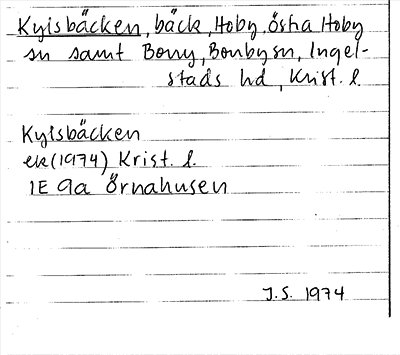 Kylsbäcken, bäck, Hoby, östra Hoby
sn samt Borry, Borrby sn, Ingel-
stads hd, Krist. l.
Kylsbäcken
ek(1974) Krist. l.
1E 9a Örnahusen
J.S. 1974